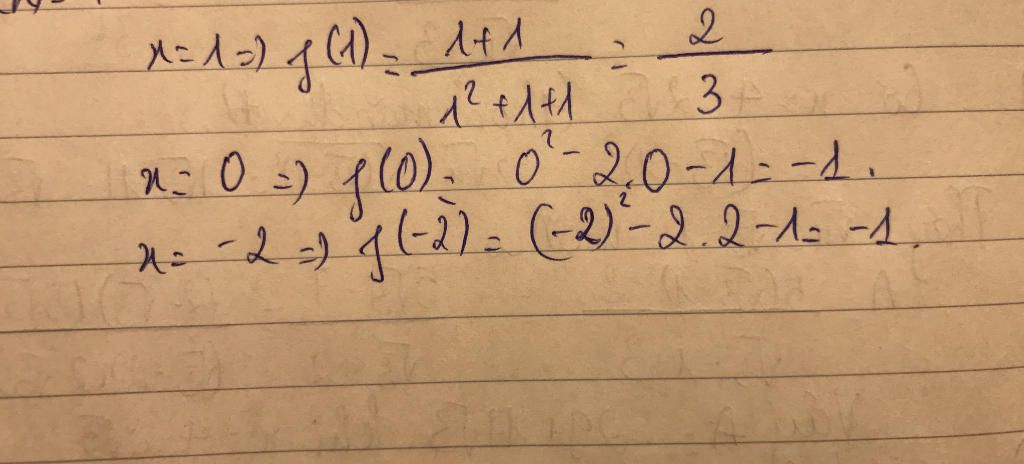 x = 1 => f(1) = (1+1)/(1²+1+1) = 2/3
x = 0 => f(0) = 0² - 2.0 - 1 = -1.
x = -2 => f(-2) = (-2)² - 2.2 - 1 = -1.